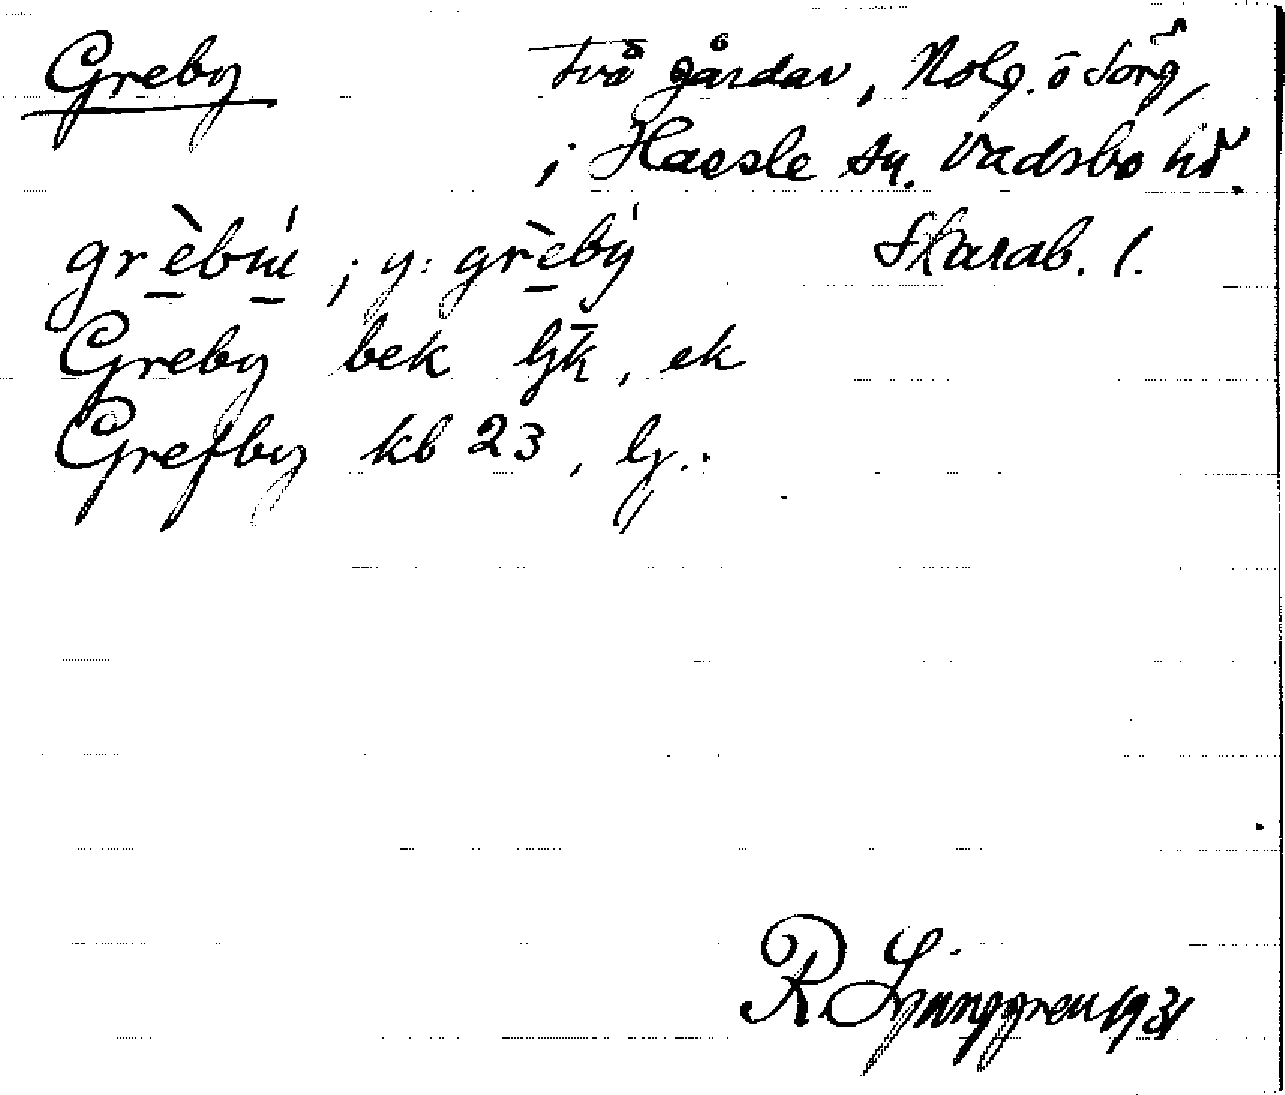 Greby
Två gårdar, Nolg. ö Sörg,
i Hassle sn. Vadsbo hd.
Skarab. l.
grèbẏ́ ; y: grèbý
Greby bek ljk, ek
Grefby kb 23, lj.
R Ljunggren 1931